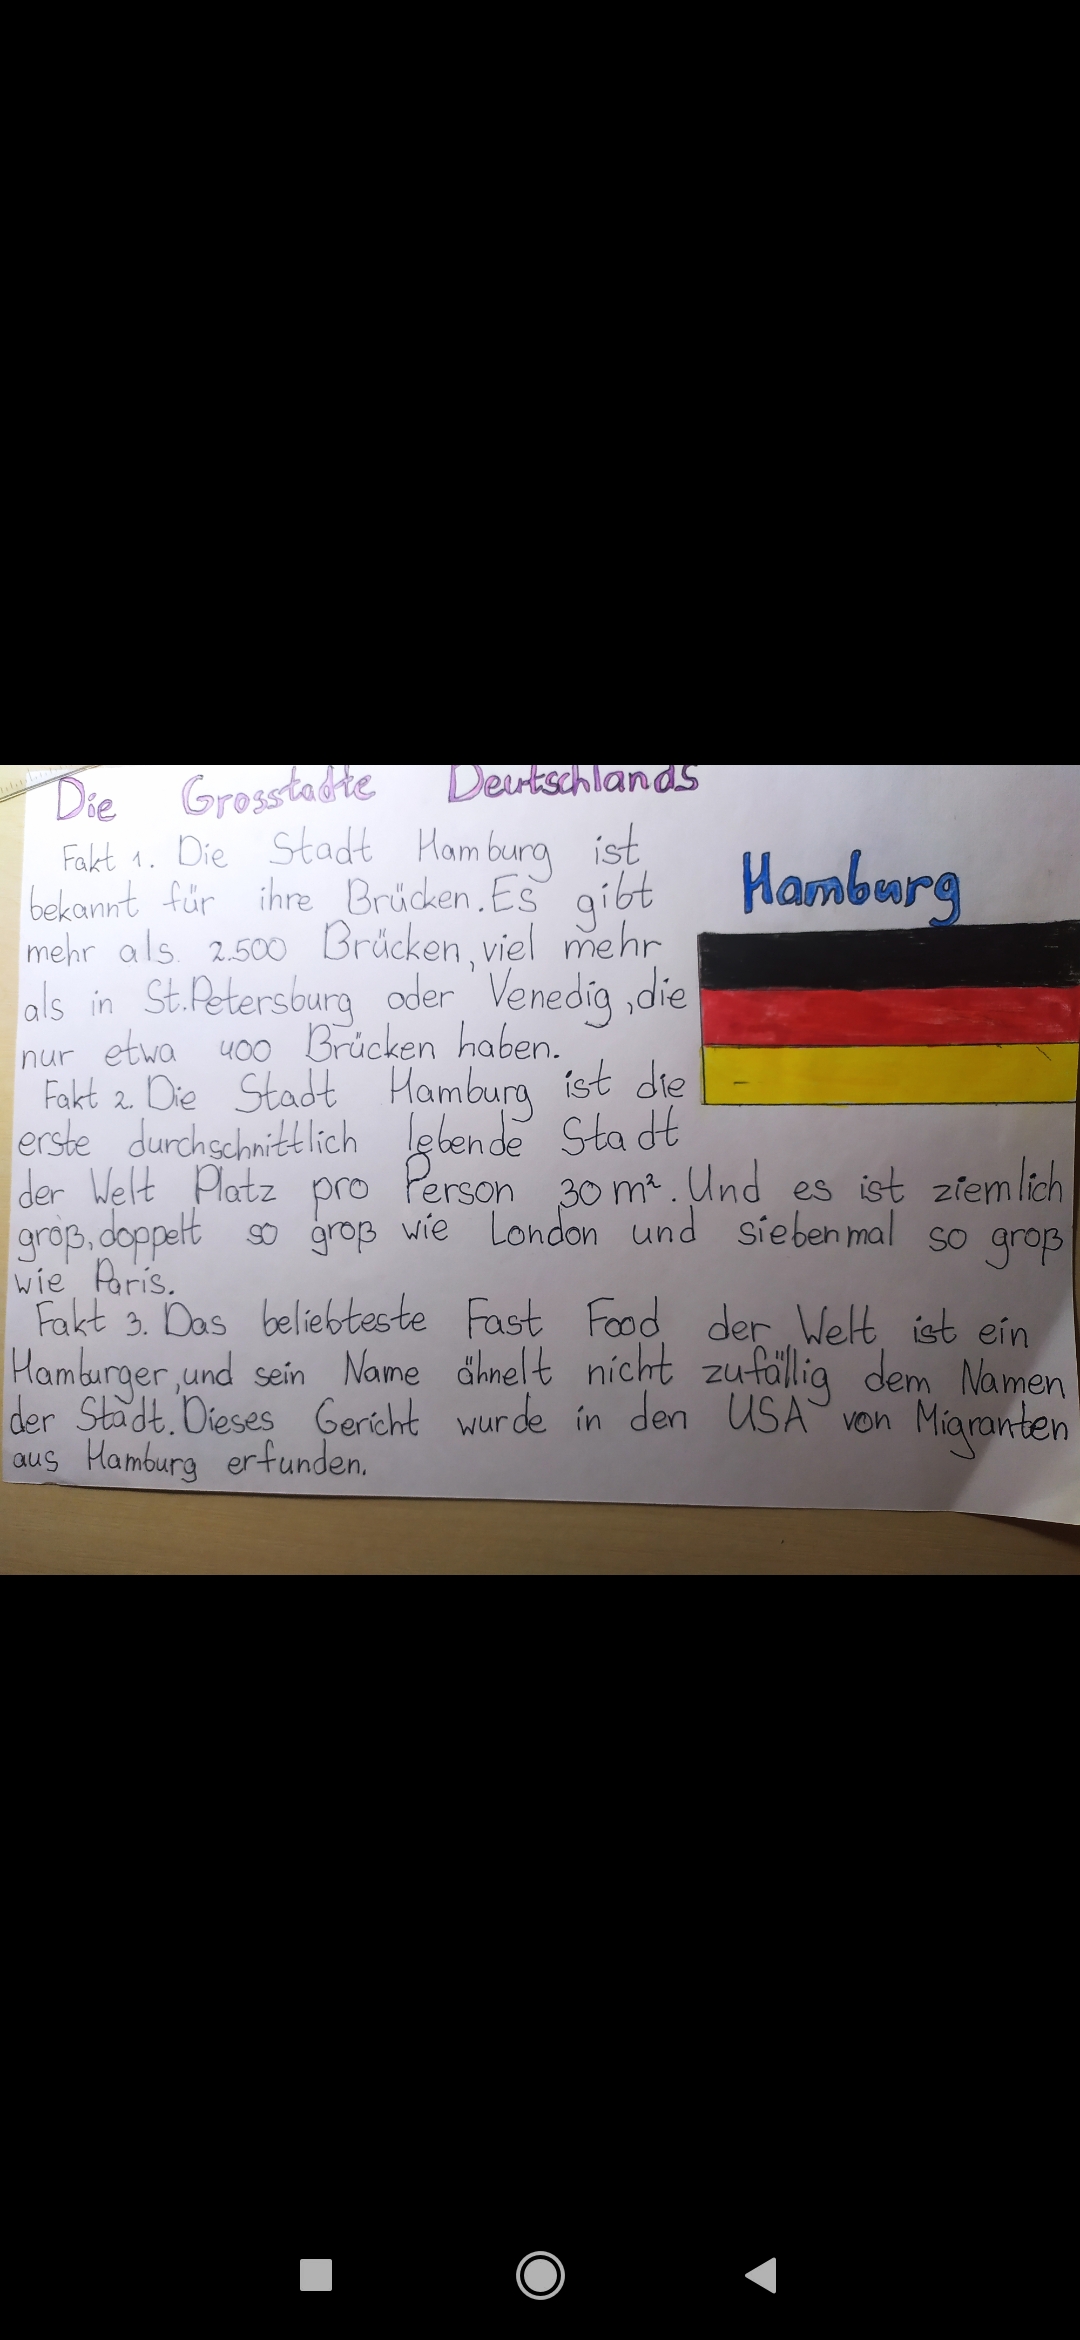 Die Grosstadte Deutschlands
Fakt 1. Die Stadt Hamburg ist
bekannt für ihre Brücken. Es gibt
mehr als 2.500 Brücken, viel mehr
als in St. Petersburg oder Venedig, die
nur etwa 400 Brücken haben.
Fakt 2. Die Stadt Hamburg ist die
erste durchschnittlich lebende Stadt
der Welt Platz pro Person 30 m². Und es ist ziemlich
groß, doppelt so groß wie London und siebenmal so groß
wie Paris.
Fakt 3. Das beliebteste Fast Food der Welt ist ein
Hamburger, und sein Name ähnelt nicht zufällig dem Namen
der Stadt. Dieses Gericht wurde in den USA von Migranten
aus Hamburg erfunden.
Hamburg